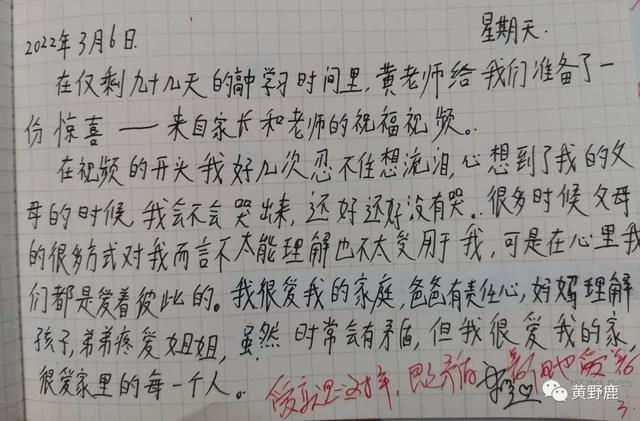 2022年3月6日. 星期天.
在仅剩九十几天的高中学习时间里,黄老师给我们准备了一
份惊喜——来自家长和老师的祝福视频。
在视频的开头我好几次忍不住想流泪,心想到了我的父
母的时候,我会不会哭出来,还好还好没有哭。很多时候父母
的很多方式对我而言不太能理解也不太受用于我,可是在心里我
们都是爱着彼此的。我很爱我的家庭,爸爸有责任心,好妈妈理解
孩子,弟弟疼爱姐姐,虽然时常会有矛盾,但我很爱我的家
很爱家里的每一个人。
爱
黄野鹿
3.